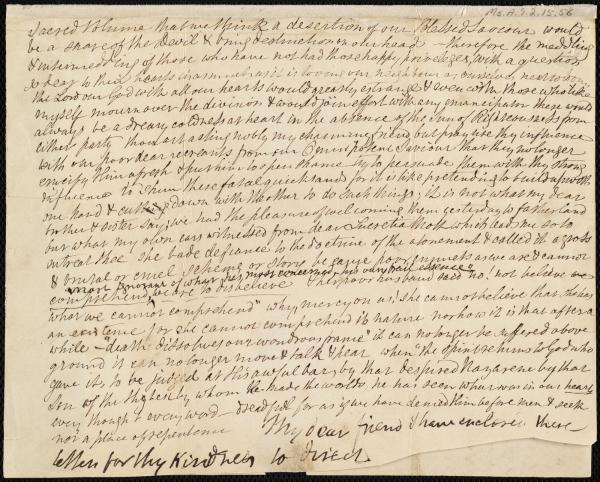 Ms. A. 9. 2. 15. 56
Sacred Volume that we think a desertion of our Blessed Saviour would
be a snare of the Devil & bring destruction on our head — therefore the meddling
& intermeddling of those who have not had those happy privileges, with a question
so dear to their hearts inasmuch as it is loving our neighbour as ourselves next to loving
the Lord our God with all our hearts would greatly estrange & even with those who like
myself mourn over the division & would join effort with any emancipator there would
always be a dreary coldness at heart in the absence of the Sun of Righteousness from
either party thou art acting nobly my charming friend but pray use thy influence
with our poor dear recreants from our Omnipotent Saviour that they no longer
crucify Him afresh & put him to open shame try to persuade them with thy strong
influence to shun these fatal quicksands for it is like pretending to build up with
one hand & cutting down with the other to do such things; it is not what my dear
brother & sister say, we had the pleasure of welcoming them yesterday to fatherland
but what my own ears witnessed from dear Lucretia Mott which lead me so to
entreat thee She bade defiance to the doctrine of the atonement & called it a gross
& brutal or cruel scheme or story because poor ignorants as we are & cannot
most ignorant of what he's most concerned, his very essence
comprehend, we are to disbelieve Her poor husband said no! not believe
what we cannot comprehend" why mercy on us, she cannot believe that she has
an existence for she cannot comprehend its nature nor how it is that after a
while — "death dissolves our wondrous frame" it can no longer be suffered above
ground it can no longer move & talk & hear when "the spirit returns to God who
gave it, to be judged at His awful bar, by that despised Nazarene by that
Son of the Highest by whom He made the worlds, he has seen what was in our hearts
every thought every word — dreadful for us if we have denied Him before men & seek
not a place of repentence
My dear friend I have enclosed these
letters for thy kindness to direct